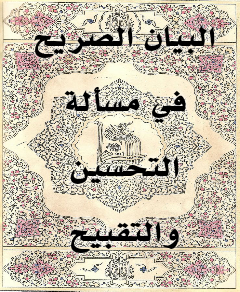 البيان الصريح
في مسألة
التحسين
والتقبيح